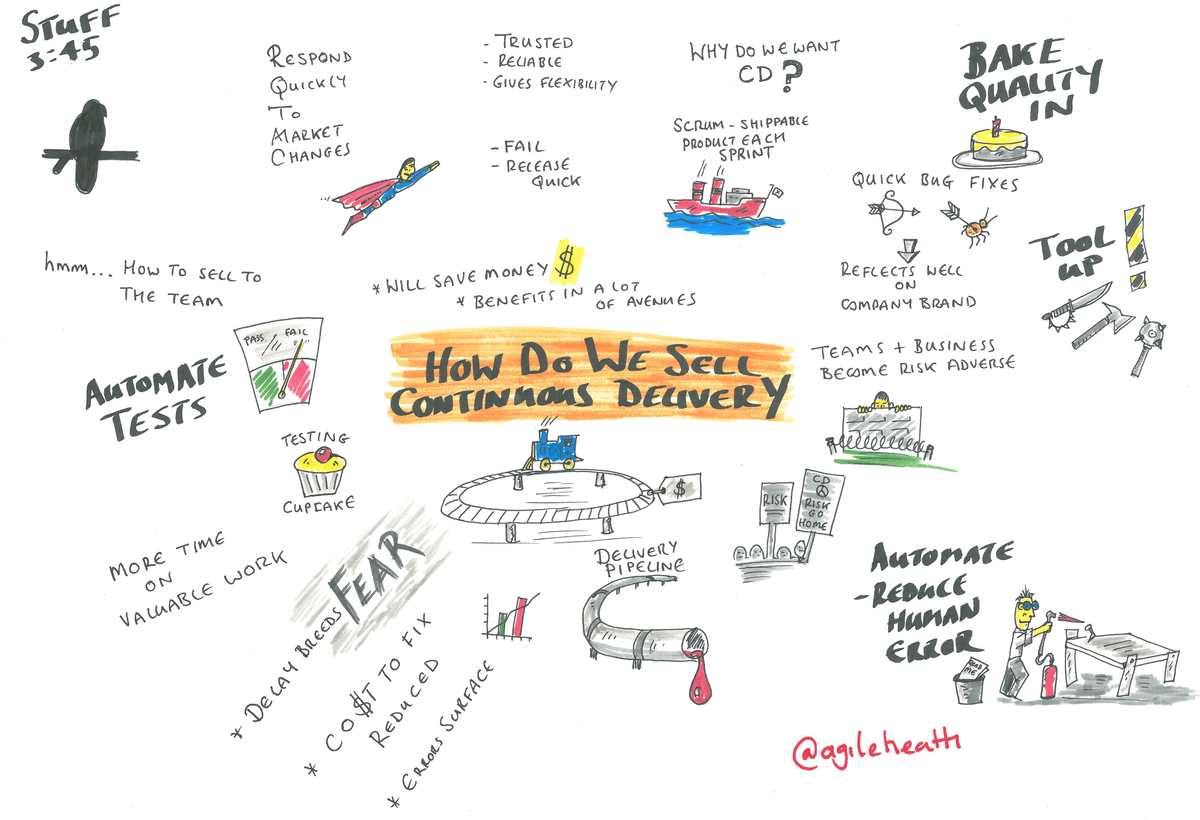 STUFF
3:45
RESPOND
QUICKLY
TO
MARKET
CHANGES
- TRUSTED
- RELIABLE
- GIVES FLEXIBILITY
- FAIL
- RELEASE
QUICK
WHY DO WE WANT
CD?
SCRUM - SHIPPABLE
PRODUCT EACH
SPRINT
BAKE
QUALITY
IN
QUICK BUG FIXES
REFLECTS WELL
ON
COMPANY BRAND
TOOL
UP!
hmm... HOW TO SELL TO
THE TEAM
* WILL SAVE MONEY $
* BENEFITS IN A LOT
OF AVENUES
HOW DO WE SELL
CONTINUOUS DELIVERY
TEAMS + BUSINESS
BECOME RISK ADVERSE
AUTOMATE
TESTS
PASS
FAIL
TESTING
CUPCAKE
$
RISK
CD
RISK
GO
HOME
MORE TIME
ON
VALUABLE WORK
* DELAY BREEDS FEAR
* CO$T TO FIX
REDUCED
* ERRORS SURFACE
DELIVERY
PIPELINE
AUTOMATE
- REDUCE
HUMAN
ERROR
READ
ME
@agileheath